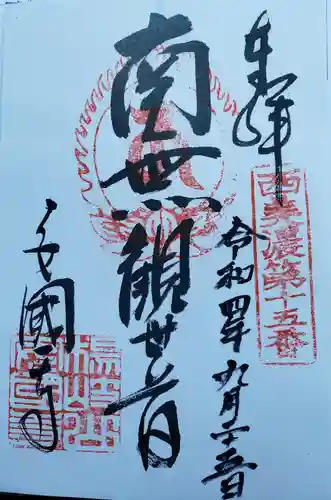 奉拝
西美濃第十五番
令和四年九月二十五日
南無觀世音
安國寺